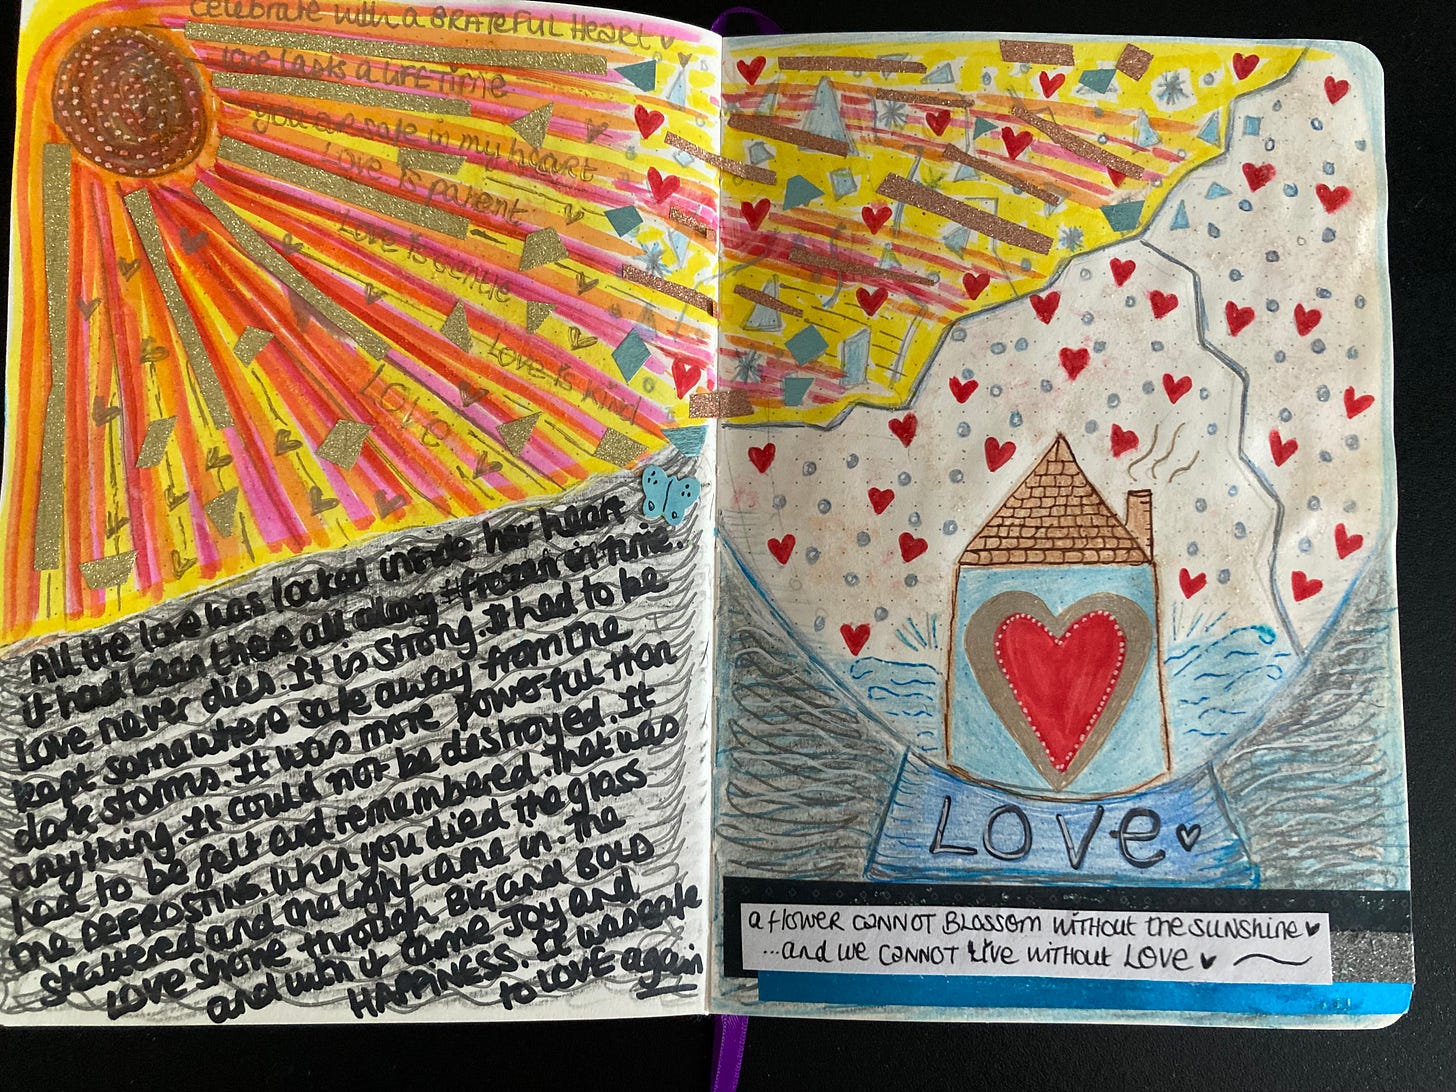 celebrate with a GRATEFUL HEART
love lasts a LIFETIME
you are safe in my heart
Love is patient
Love is gentle
Love is kind
LOVE
All the love was locked inside her heart
it had been there all along & frozen in time.
Love never dies. It is strong. It had to be
kept somewhere safe away from the
dark storms. It was more powerful than
anything. It could not be destroyed. It
had to be felt and remembered. That was
the DEFROSTING. When you died the glass
shattered and the light came in. The
Love shone through BIG and BOLD
and with it came JOY and
HAPPINESS. It was safe
to LOVE again
LOVE
a flower cannot BLOSSOM without the sunshine
...and we cannot live without LOVE